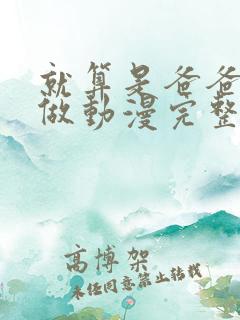 就算是爸爸
做動漫完整
高博架
未经同意禁止转载